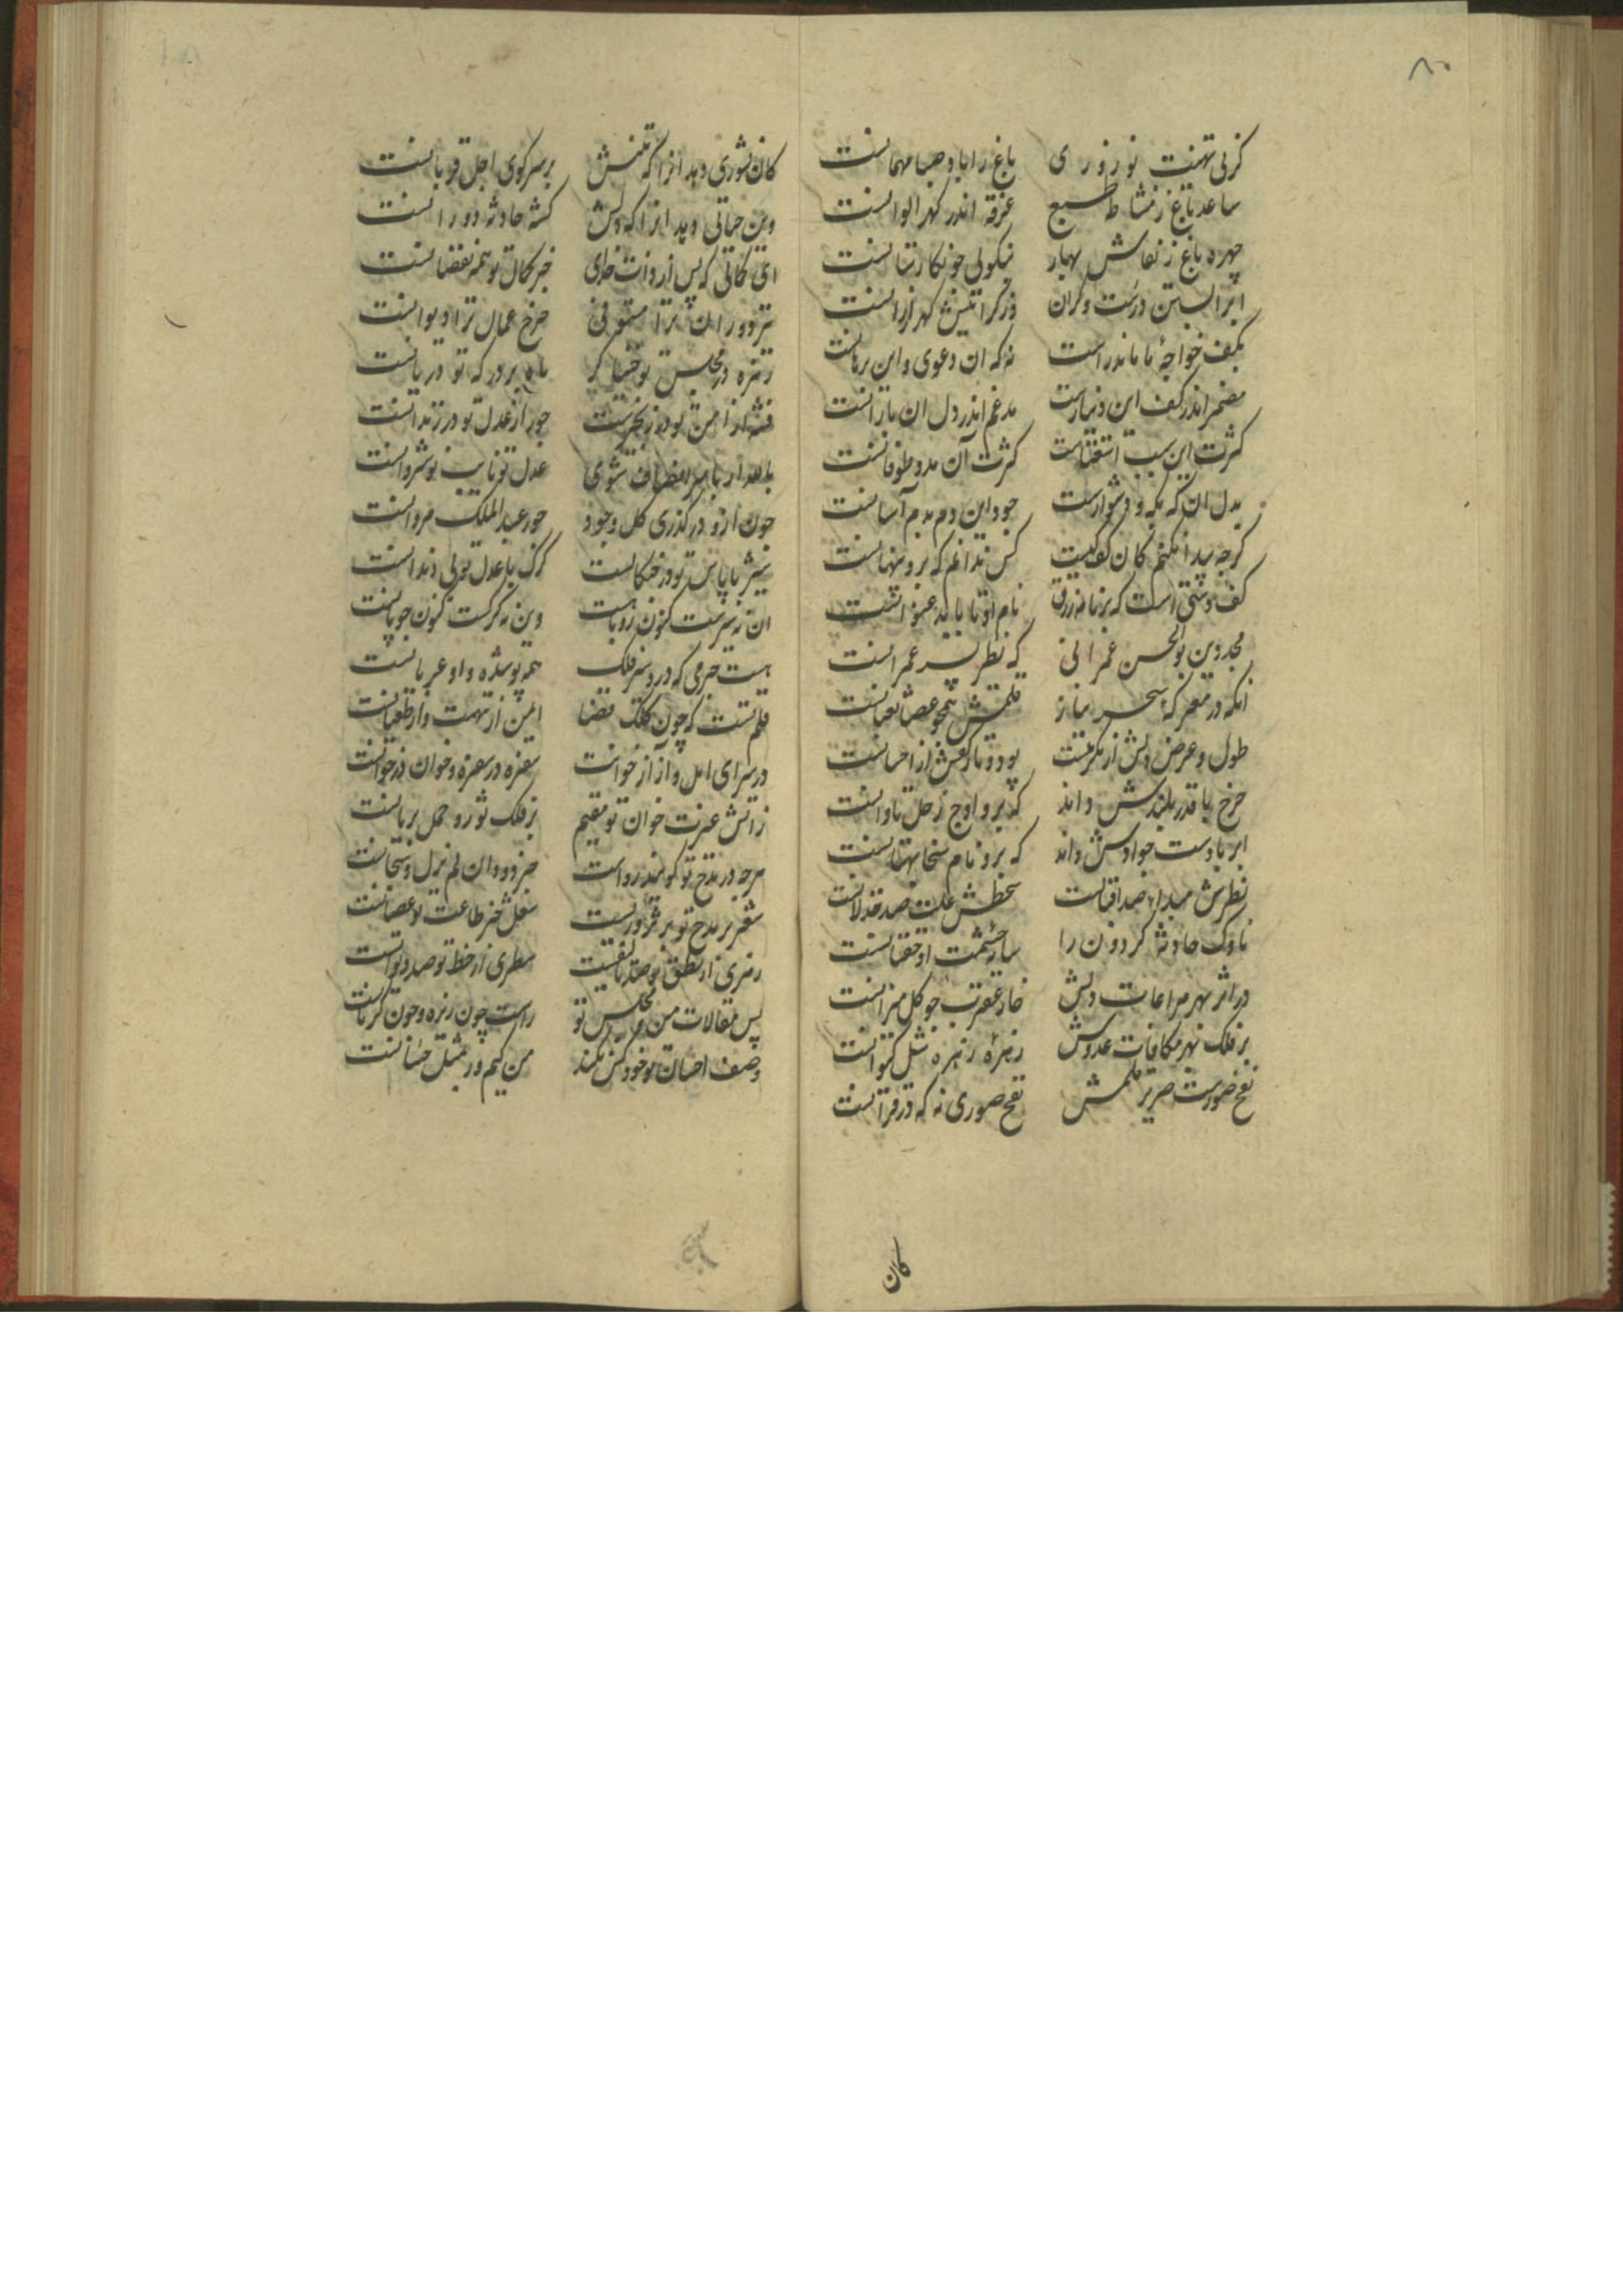 ۸۰
کز پی تهنیت نوروزی باغ را باد صبا مهمانست
ساعد باغ ز مشاطه طبع غرقه اندر گهر الوانست
چهره باغ ز نقاش بهار بنکویی چو نکارستانست
ابر آبستن درست و کران وز کرانیش گهر ارزانست
بکف خواجه ما ماند راست نه که این دعوی و این برهانست
مضمر اندر کف این دینارست مدغم اندر دل آن بارانست
کثرت این سبب استغناست کثرت آن مدد طوفانست
بدل آن که به که و دشوارست جود این دم بدم آسانست
کرچه پیدا نکنم کان کف کیست کس ندانم که برو پنهانست
کف دستی است که بر نامه رزق نام او تا بابد عنوانست
مجد دین بوالحسن عمرانی که نظر پسر عمرانست
آنکه در معرکه سحر بیان قلمش همچو عصا ثعبانست
طول و عرض دلش از مکرمتست پود و تار کفش از احسانست
چرخ با قدر بلندش داند که برو اوج زحل تاوانست
ابر با دست جوادش داند که برو نام سخا بهتانست
نظرش مبدا صد اقبالست سخطش علت صد خذلانست
ناوک حادثه گردون را سایه حشمت او خفتانست
در اثر بهر مراعات دلش خار عقرب چو گل میزانست
بر فلک بهر مکافات عدوش زخمه زهره شل کیوانست
نفخ صورست صریر قلمش نفخ صوری نه که در قرآنست
کان
کان نشوری دهد آنرا که تنش بر سر کوی اجل قربانست
وین حیاتی دهد آنرا که دلش کشته حادثه دورانست
ای کمالی که پس از ذات خدای جز کمال تو همه نقصانست
تیر دوران ترا مستوفی چرخ عمال ترا دیوانست
زهره در مجلس تو خنیاگر ماه بر درگه تو دربانست
فتنه از امن تو در زنجیرست جور از عدل تو در زندانست
بالله ار با سر انصاف شوی عدل تو نایب نوشروانست
چون ازو درگذری کل وجود جور عبدالملک مروانست
شیر با پاس تو بی چنگالست گرگ با عدل تو بی دندانست
آن نه شیرست کنون روباهست وین نه گرگست کنون چوپانست
هست جرمی که در و سر فلک همه پوشیده و او عریانست
قلم تست که چون کلک قضا ایمن از تهمت و از طغیانست
در سرای امل و آز از خوانت سفره در سفره و خوان در خوانست
ز آتش غیرت خوان تو مقیم بر فلک ثور و حمل بریانست
هرچه در مدح تو گویند رواست جز دو و آن لم یزل و سبحانست
شعر جز مدح تو بر تزویرست شغل جز طاعت تو عصیانست
رمزی از نطق تو صد تالیفست سطری از خط تو صد دیوانست
پس مقالات من و مجلس تو راست چون زیره و چون کرمانست
وصف احسان تو خود کس نکند من کیم ور بمثل حسانست